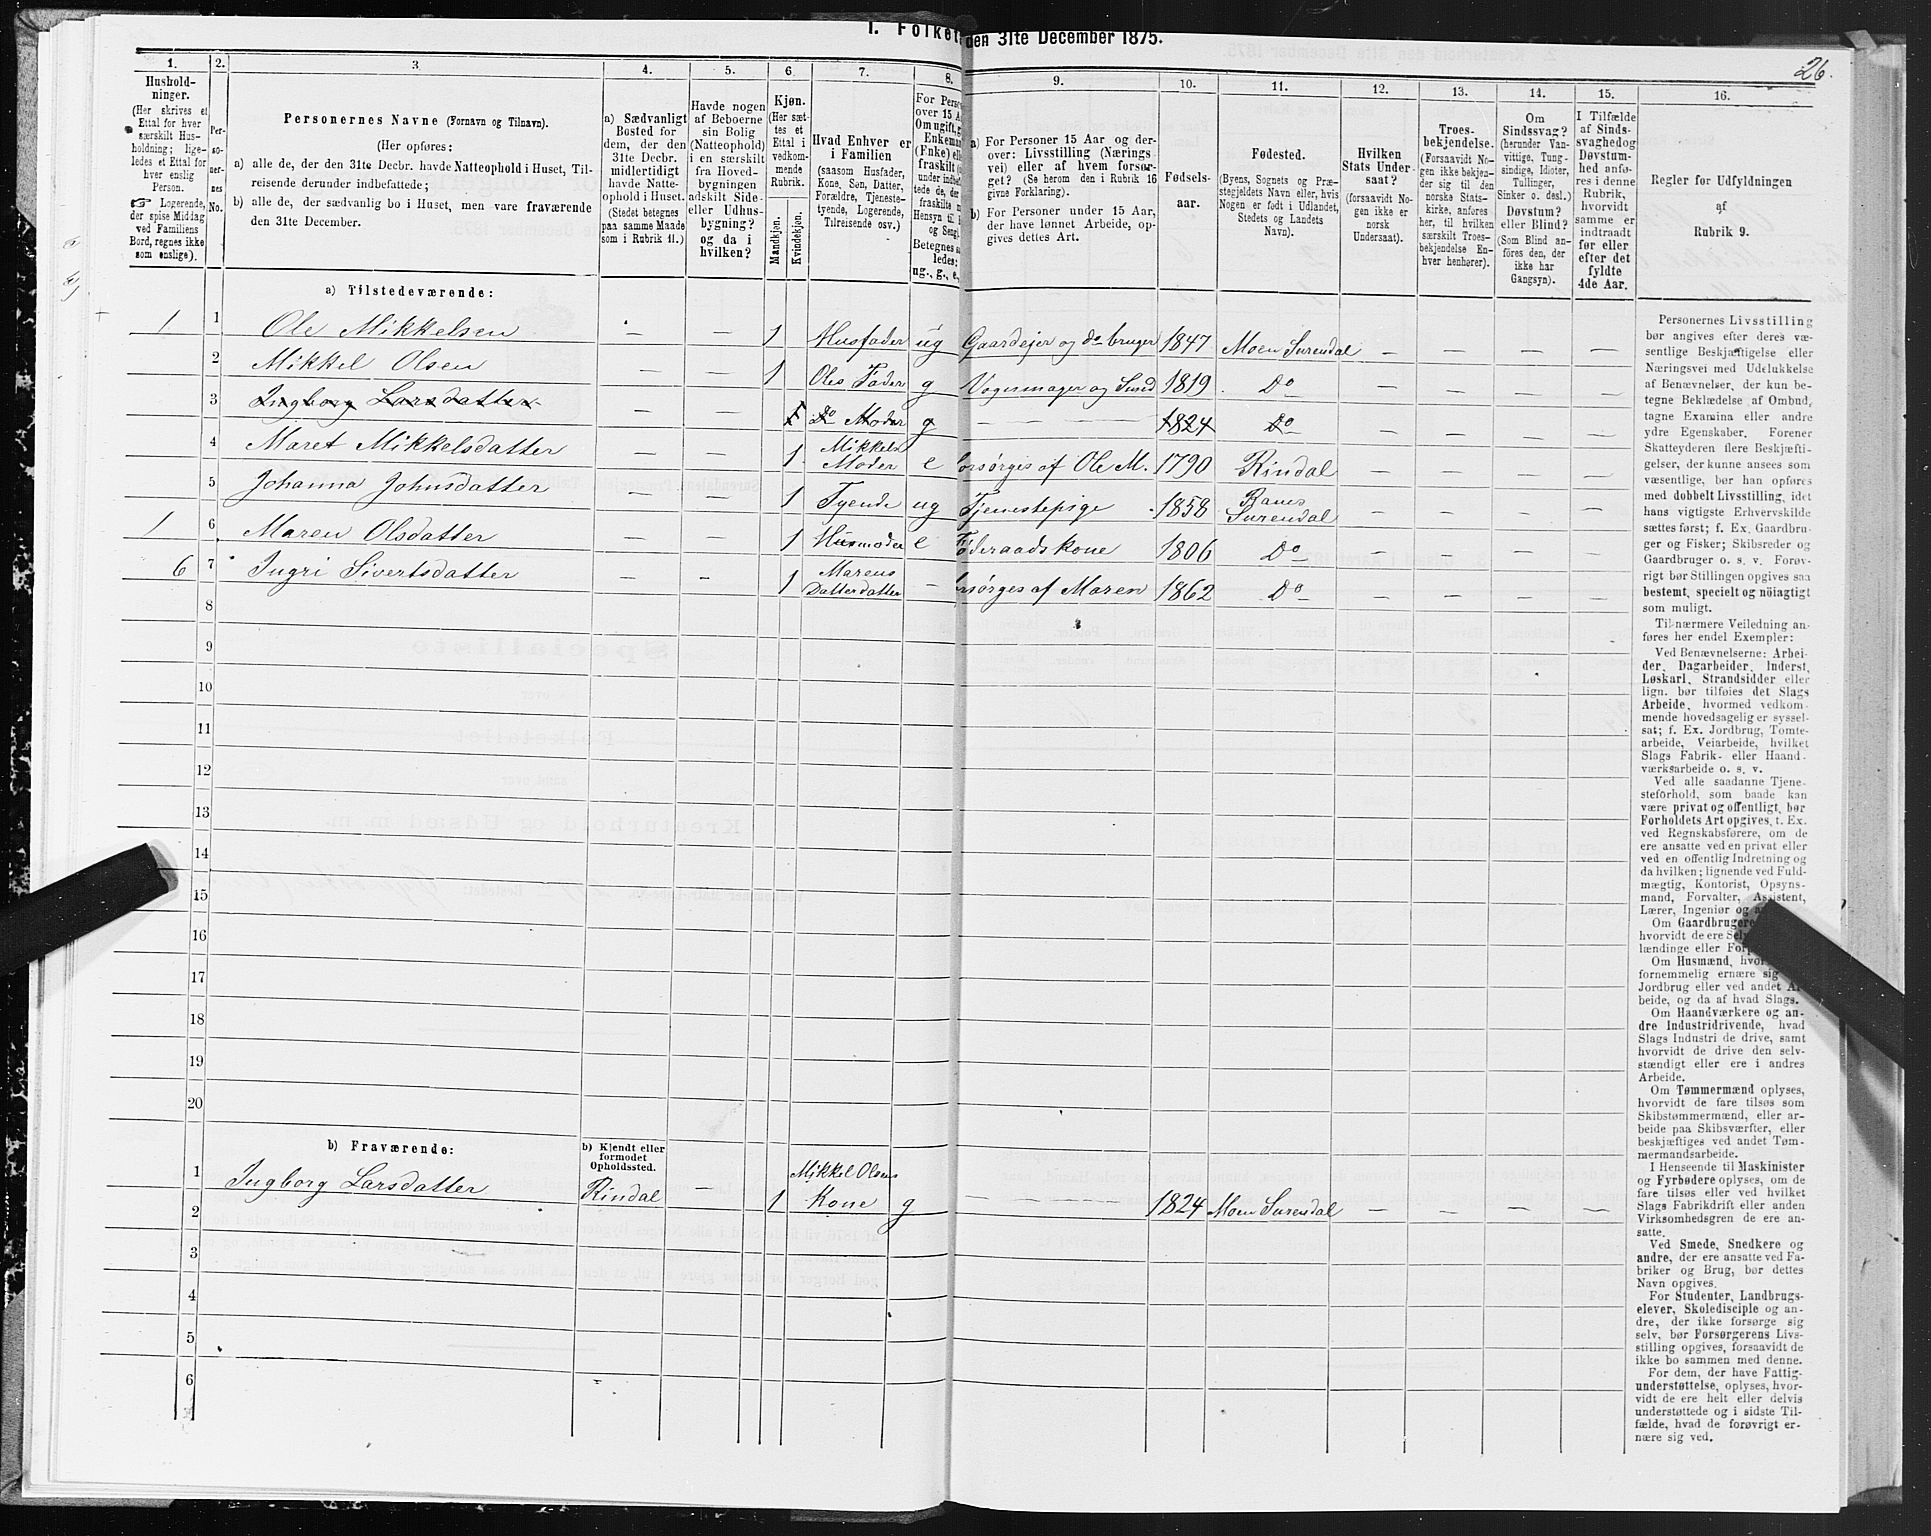 I. Folket
den 31te December 1875.
26.
1.
2.
3.
4.
5.
6.
7.
8.
9.
10.
11.
12.
13.
14.
15.
16.
Hushold-
ninger.
(Her skrives et
Ettal for hver
særskilt Hus-
holdning; lige-
ledes et Ettal for
hver enslig
Person.
☞ Logerende,
der spise Middag
ved Familiens
Bord, regnes ikke
som enslige).
Per-
so-
ner-
nes
No.
Personernes Navne (Fornavn og Tilnavn).
(Her opføres:
a) alle de, der den 31te Decbr. havde Natteophold i Huset, Til-
reisende derunder indbefattede;
b) alle de, der sædvanlig bo i Huset, men vare fraværende
den 31te December.
a) Sædvanligt
Bosted for
dem, der den
31te Decbr.
midlertidigt
havde Natte-
ophold i Huset.
(Stedet betegnes
paa samme Maade
som i Rubrik 11.)
Havde nogen
af Beboerne
sin Bolig
(Natteophold)
i en særskilt
fra Hoved-
bygningen
adskilt Side-
eller Udhus-
bygning?
og da i
hvilken?
Kjøn.
(Her sæt-
tes et
Ettal i
vedkom-
mende
Rubrik.
Mandkjøn.
Kvindekjøn.
Hvad Enhver er
i Familien
(saasom Husfader,
Kone, Søn, Datter,
Forældre, Tjeneste-
tyende, Logerende,
Tilreisende osv.)
For Perso
over 15 A
Om ugift, g
Enkeman
(Enke) elle
fraskilt (
under indbef
tede de, der
fraskilte m
Hensyn til B
og Seng)
Betegnes sa
ledes:
ug., g., e.,
a) For Personer 15 Aar og der-
over: Livsstilling (Nærings-
vei) eller af hvem forsør-
get? (Se herom den i Rubrik 16
givne Forklaring).
b) For Personer under 15 Aar,
der have lønnet Arbeide, op-
gives dettes Art.
Fødsels-
aar.
Fødested.
(Byens, Sognets og Præ-
stegjeldets Navn eller, hvis
Nogen er født i Udlandet,
Stedets og Landets
Navn).
Hvilken
Stats Under-
saat?
(forsaavidt No-
gen ikke er
norsk
Undersaat).
Troes-
bekjendelse.
(Forsaavidt No-
gen ikke bekjen-
der sig til den
norske Stats-
kirke, anføres
her, til hvilken
særskilt Troes-
bekjendelse En-
hver henhører).
Om
Sindssvag?
(herunder Van-
vittige, Tung-
sindige, Idioter,
Tullinger,
Sinker o. desl.)
Døvstum?
eller Blind?
(Som Blind an-
føres den, der
ikke har
Gangsyn).
I Tilfælde
af Sinds-
svaghed og
Døvstum-
hed anfø-
res i denne
Rubrik,
hvorvidt
samme er
indtraadt
før eller
efter det
fyldte
4de Aar.
Regler for Udfyldningen
af
Rubrik 9.
a) Tilstedeværende:
1 1 Ole Mikkelsen — — 1 Husfader ug Gaardejer og do bruger 1847 Moen Surendal — — — —
2 Mikkel Olsen — — 1 Oles Fader g Vognmager og Smed 1819 Do — — — —
3 Ingborg Larsdatter — — 1 do Moder g — — — — 1824 Do — — — —
4 Maret Mikkelsdatter — — 1 Mikkels Moder e orsørges af Ole M. 1790 Rindal — — — —
5 Johanna Johnsdatter — — 1 Tyende ug Tjenestepige 1858 Ranes Surendal — — — —
1 6 Maren Olsdatter — — 1 Husmoder e Føderaadskone 1806 Do — — — —
6 7 Ingri Sivertsdatter — — 1 Marens Datterdatter — rsørges af Maren 1862 Do — — — —
8
9
10
11
12
13
14
15
16
17
18
19
20
b) Fraværende:
b) Kjendt eller
formodet
Opholdssted.
1 Ingborg Larsdatter Rindal — 1 Mikkel Olsens Kone g — — — — 1824 Moen Surendal — — — —
2
3
4
5
6
Personernes Livsstilling
bør angives efter deres væ-
sentlige Beskjæftigelse eller
Næringsvei med Udelukkelse
af Benævnelser, der kun be-
tegne Beklædelse af Ombud,
tagne Examina eller andre
ydre Egenskaber. Forener
Skatteyderen flere Beskjæfti-
gelser, der kunne ansees som
væsentlige, bør han opføres
med dobbelt Livsstilling, idet
hans vigtigste Erhvervskilde
sættes først; f. Ex. Gaardbru-
ger og Fisker; Skibsreder og
Gaardbruger o. s. v. Forøv-
rigt bør Stillingen opgives saa
bestemt, specielt og nøiagtigt
som muligt.
Til nærmere Veiledning an-
føres her endel Exempler:
Ved Benævnelserne: Arbei-
der, Dagarbeider, Inderst,
Løskarl, Strandsidder eller
lign. bør tilføies det Slags
Arbeide, hvormed vedkom-
mende hovedsagelig er syssel-
sat; f. Ex. Jordbrug, Tomte-
arbeide, Veiarbeide, hvilket
Slags Fabrik- eller Haand-
værksarbeide o. s. v.
Ved alle saadanne Tjene-
steforhold, som baade kan
være privat og offentligt, bør
Forholdets Art opgives, t. Ex.
ved Regnskabsførere, om de
ere ansatte ved en privat eller
ved en offentlig Indretning og
da hvilken; lignende ved Fuld-
mægtig, Kontorist, Opsyns-
mand, Forvalter, Assistent,
Lærer, Ingeniør og
Om Gaardbrugere
hvorvidt de ere Sel
lændinge eller Forp
Om Husmænd, hvor
fornemmelig ernære sig
Jordbrug eller ved andet Ar-
beide, og da af hvad Slags.
Om Haandværkere og an-
dre Industridrivende, hvad
Slags Industri de drive, samt
hvorvidt de drive den selv-
stændigt eller ere i andres
Arbeide.
Om Tømmermænd oplyses,
hvorvidt de fare tilsøs som
Skibstømmermænd, eller ar-
beide paa Skibsværfter, eller
beskjæftiges ved andet Tøm-
mermandsarbeide.
I Henseende til Maskinister
og Fyrbødere oplyses, om de
fare tilsøs eller ved hvilket
Slags Fabrikdrift eller anden
Virksomhedsgren de ere an-
satte.
Ved Smede, Snedkere og
andre, der ere ansatte ved Fa-
briker og Brug, bør dettes
Navn opgives.
For Studenter, Landbrugs-
elever, Skoledisciple og an-
dre, der ikke forsørge sig
selv, bør Forsørgerens Livs-
stilling opgives, forsaavidt de
ikke bo sammen med denne.
For dem, der have Fattig-
understøttelse, oplyses, hvor-
vidt de ere helt eller delvis
understøttede og i sidste Til-
fælde, hvad de forøvrigt er-
nære sig ved.